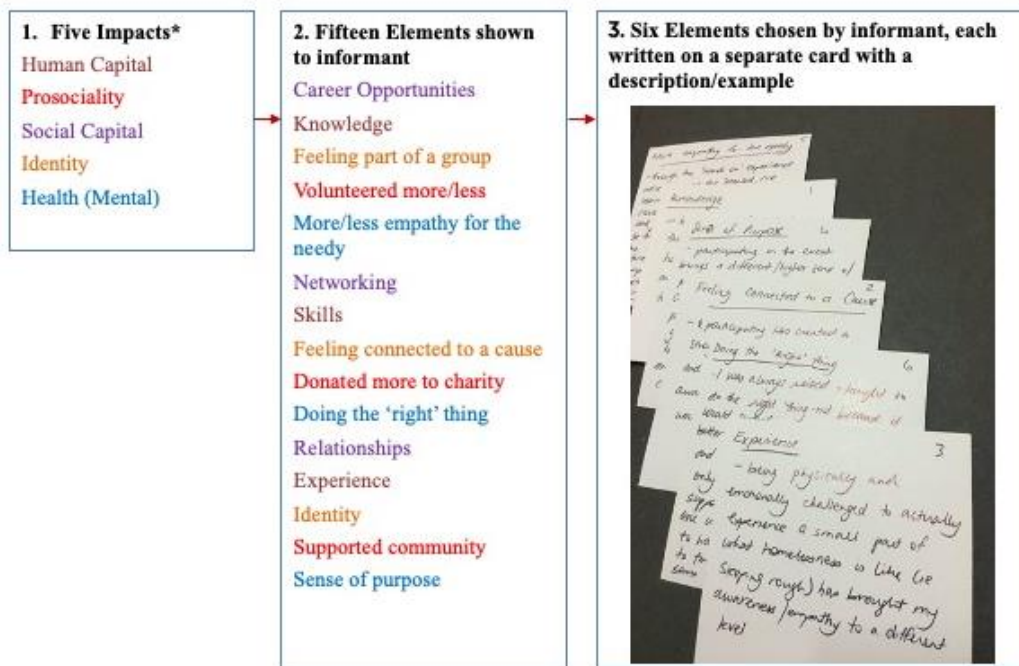 1. Five Impacts*
Human Capital
Prosociality
Social Capital
Identity
Health (Mental)
2. Fifteen Elements shown
to informant
Career Opportunities
Knowledge
Feeling part of a group
Volunteered more/less
More/less empathy for the
needy
Networking
Skills
Feeling connected to a cause
Donated more to charity
Doing the ‘right’ thing
Relationships
Experience
Identity
Supported community
Sense of purpose
3. Six Elements chosen by informant, each
written on a separate card with a
description/example
empathy for the needy
- through the 'hands on' experience
Knowledge
1
Sense of Purpose
4
- participating in the event
brings a different/higher sense of
Feeling Connected to a Cause
2
- participating has created a
Doing the 'right' thing
6
- I was always raised + taught to
do the right thing not because it
Experience
3
- being physically and
emotionally challenged to actually
experience a small part of
what homelessness is like (ie
sleeping rough) has brought my
awareness/empathy to a different
level